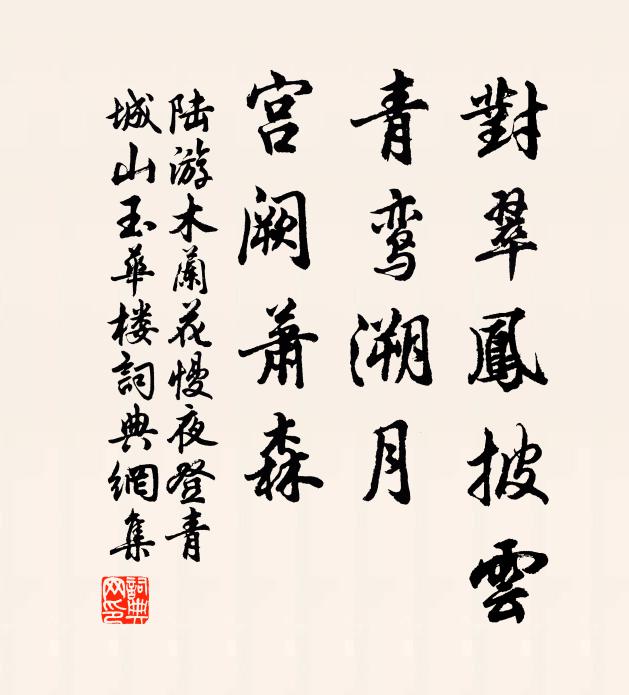 對翠鳳披雲
青鸾溯月
宫阙萧森
陆游木蘭花慢夜登青
城山玉華楼詞典網集
詞典网印